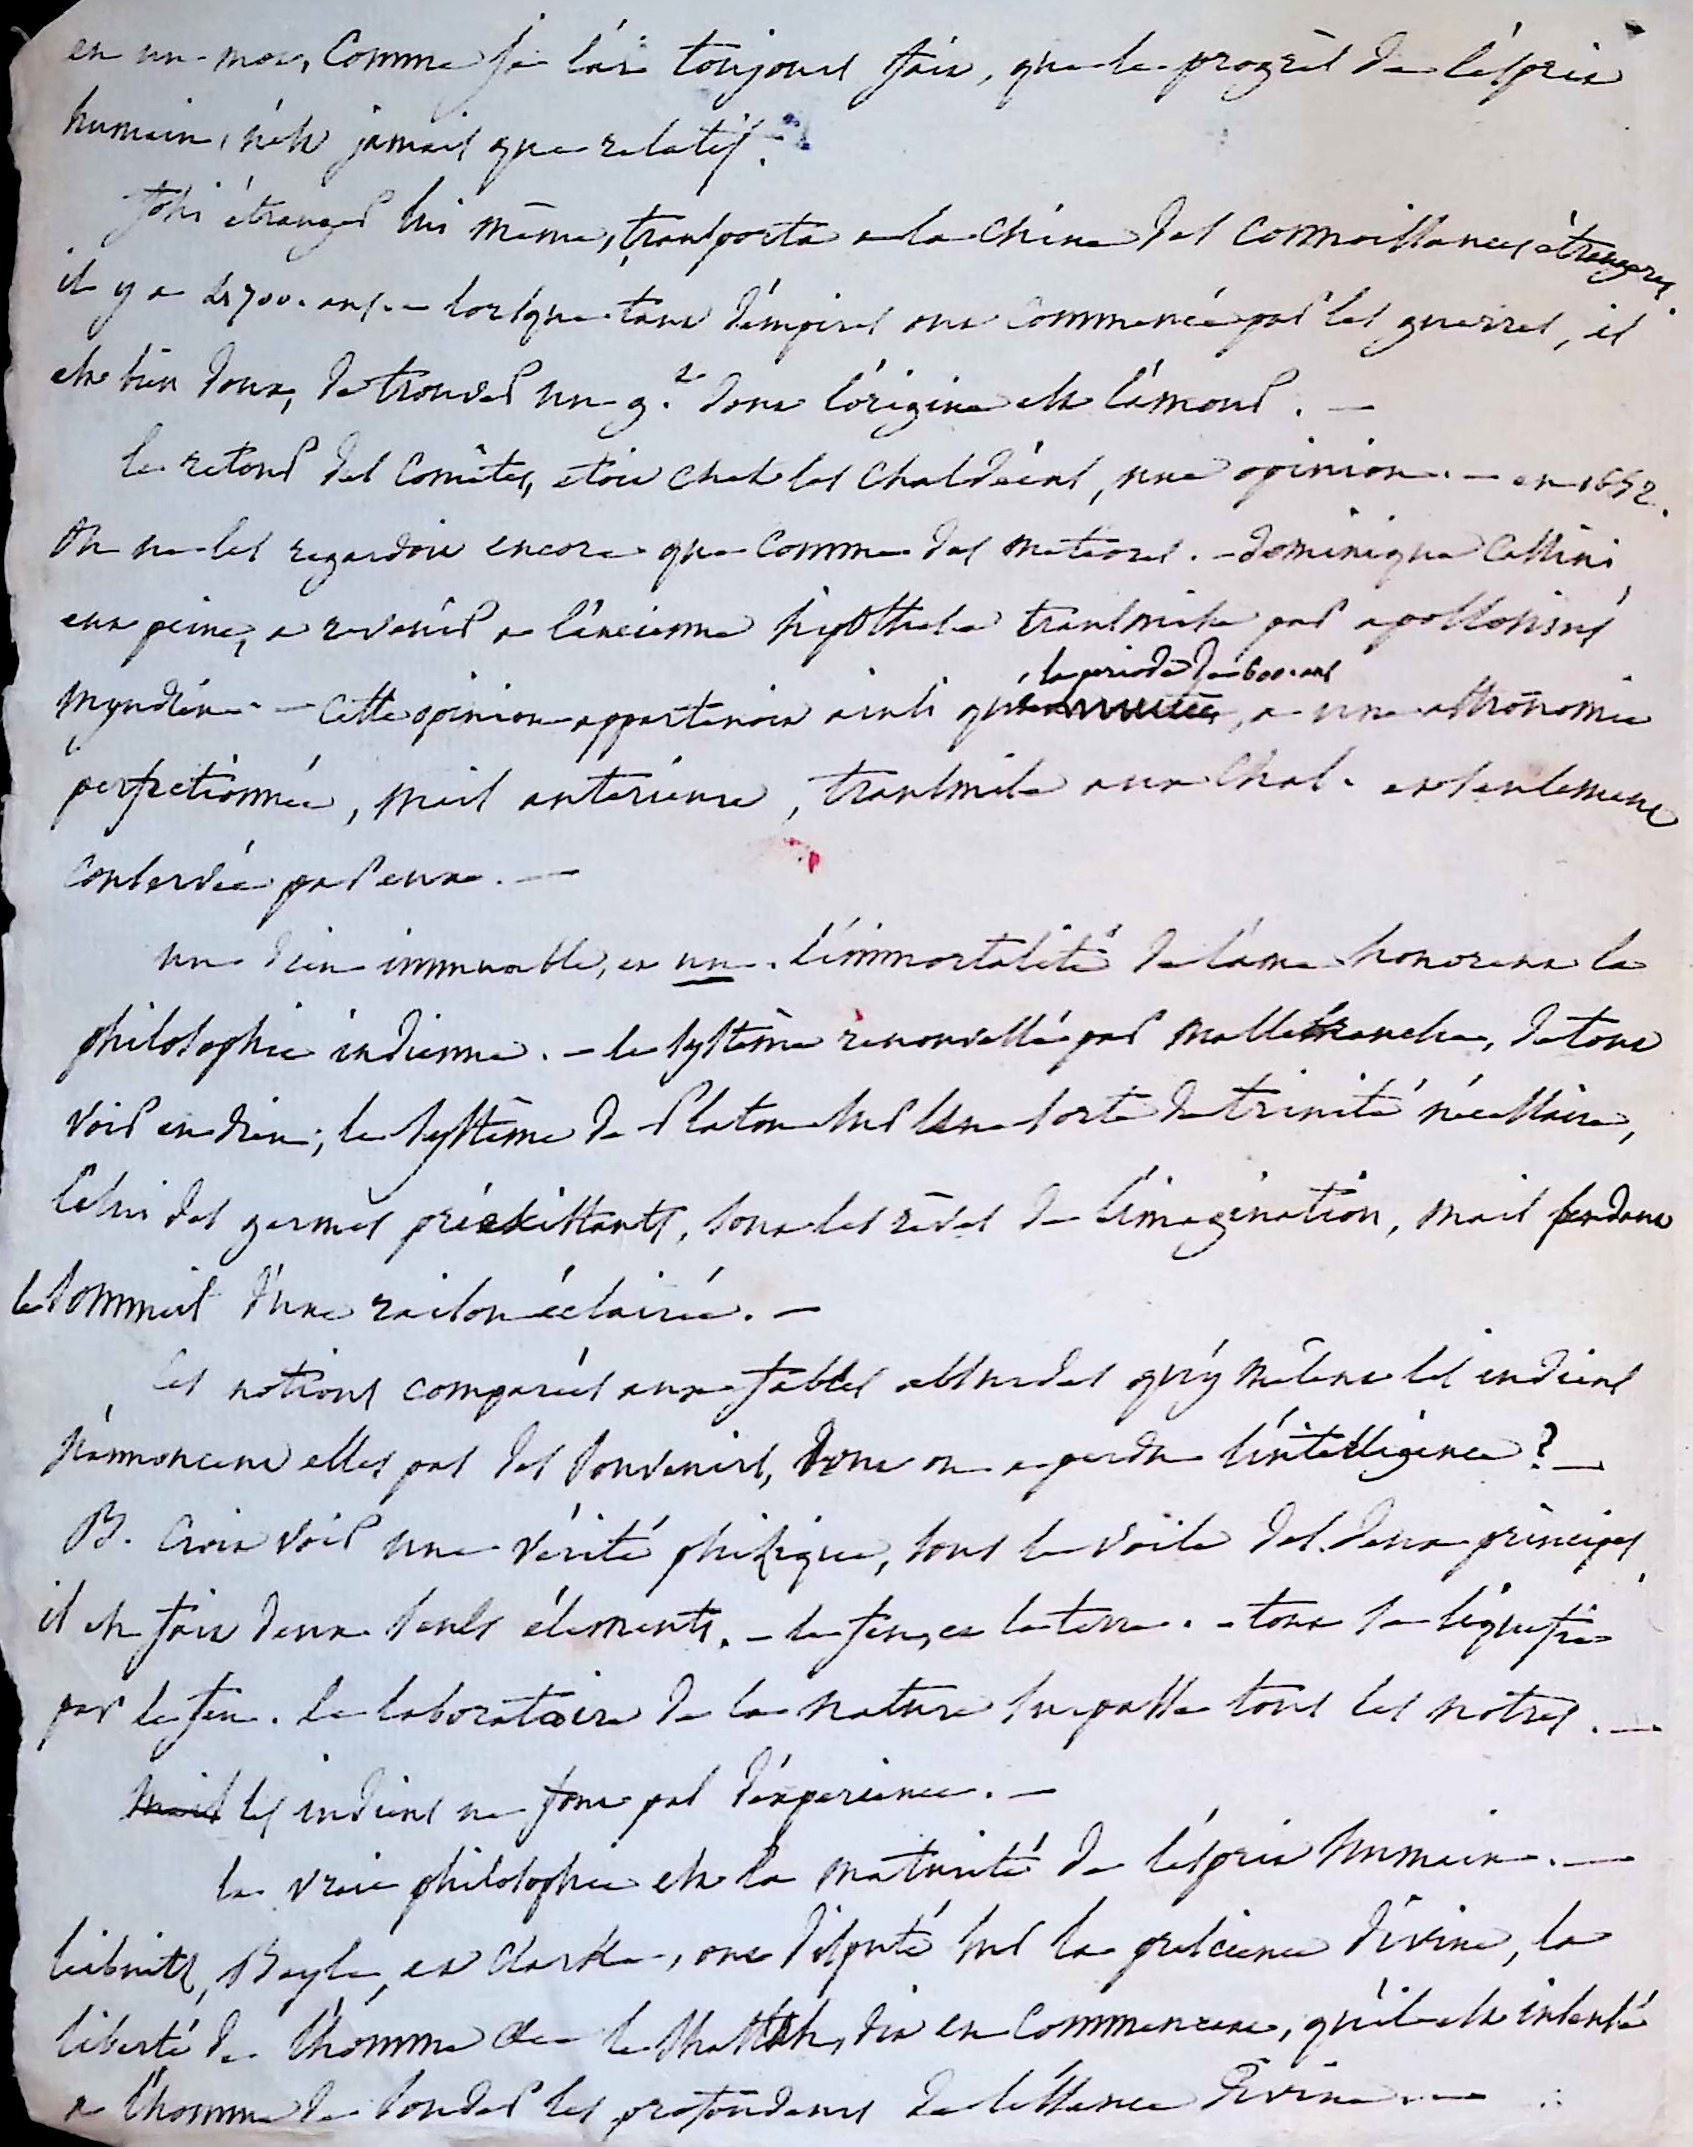 en un mot, comme je l'ai toujours fait, que le progrès de l'esprit
humain, n'est jamais que relatif.
fohi étranger lui même, transporta a la chine des connoissances étrangeres
il y a 4700. ans. – lorsque tant d'empires ont commencé par les guerres, il
est bien doux, de trouver un g.d dont l'origine est l'amour. –
le retour des comètes, etoit chez les chaldéens, une opinion. – en 1652.
on ne les regardoit encore que comme des meteores. – dominique Cassini
eut peine, a revenir a l'ancienne hypothese transmise par apollonius
myndien. – cette opinion appartenoit ainsi que la periode de 600. ans, a une astronomie
perfectionnée, mais anterieure, transmise aux Chal. et seulement
conservée par eux. –
un dieu immuable, et un. l'immortalité de l'ame honorent la
philosophie indienne. – le systême renouvellé par mallebranche, de tout
voir en dieu; le systême de Platon sur une sorte de trinité nécessaire,
celui des germes préexistants, sont les rêves de l'imagination, mais pendant
le sommeil d'une raison éclairée. –
ces notions comparées aux fables absurdes qu'y mêlent les indiens
n'annoncent elles pas des souvenirs, dont on a perdu l'intelligence? –
B. croit voir une vérité phisique, sous le voile des deux principes
il en fait deux seuls éléments. – le feu, et la terre. – tout se liquefie
par le feu. le laboratoire de la nature surpasse tous les notres. –
mais les indiens ne font pas d'experience. –
la vraie philosophie est la maturité de l'esprit humain. –
leibnitz, Bayle, et Clarke, ont disputé sur la prescience divine, la
liberté de l'homme &c – le shastah, dit en commençant, qu'il est insensé
a l'homme de sonder les profondeurs de l'essence divine. –